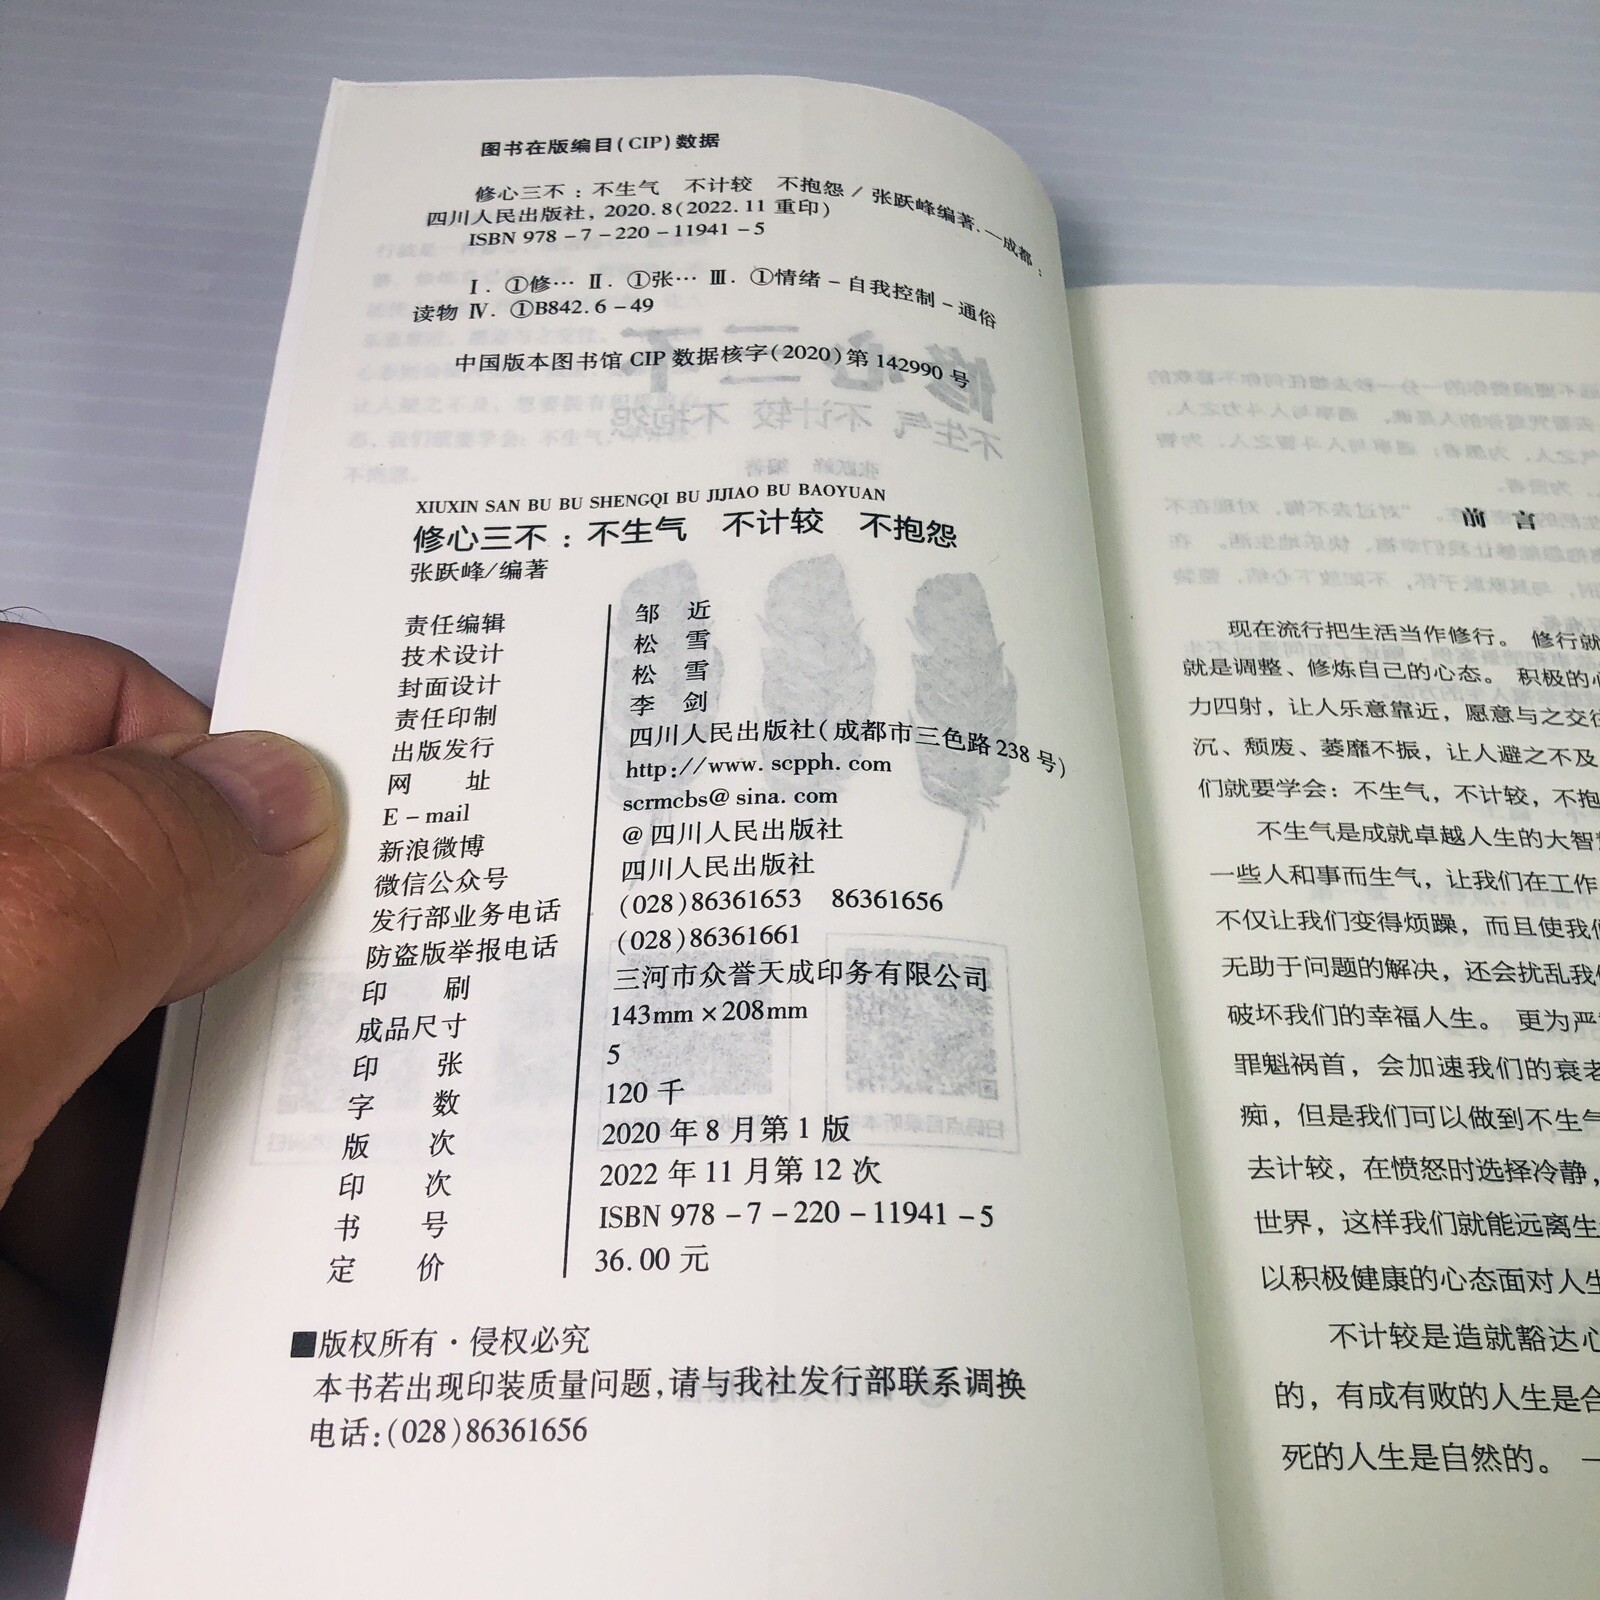 图书在版编目(CIP)数据
修心三不：不生气　不计较　不抱怨 / 张跃峰编著.—成都：
四川人民出版社，2020.8(2022.11 重印)
ISBN 978-7-220-11941-5
Ⅰ. ①修… Ⅱ. ①张… Ⅲ. ①情绪-自我控制-通俗
读物 Ⅳ. ①B842.6-49
中国版本图书馆 CIP 数据核字(2020)第 142990 号
XIUXIN SAN BU BU SHENGQI BU JIJIAO BU BAOYUAN
修心三不：不生气　不计较　不抱怨
张跃峰/编著
责任编辑　邹　近
技术设计　松　雪
封面设计　松　雪
责任印制　李　剑
出版发行　四川人民出版社(成都市三色路 238 号)
网　　址　http://www.scpph.com
E-mail　scrmcbs@sina.com
新浪微博　@四川人民出版社
微信公众号　四川人民出版社
发行部业务电话　(028)86361653　86361656
防盗版举报电话　(028)86361661
印　　刷　三河市众誉天成印务有限公司
成品尺寸　143mm×208mm
印　　张　5
字　　数　120 千
版　　次　2020 年 8 月第 1 版
印　　次　2022 年 11 月第 12 次
书　　号　ISBN 978-7-220-11941-5
定　　价　36.00 元
■版权所有·侵权必究
本书若出现印装质量问题，请与我社发行部联系调换
电话：(028)86361656
前　言
现在流行把生活当作修行。修行就
就是调整、修炼自己的心态。积极的心
力四射，让人乐意靠近，愿意与之交往
沉、颓废、萎靡不振，让人避之不及
们就要学会：不生气，不计较，不抱
不生气是成就卓越人生的大智
一些人和事而生气，让我们在工作
不仅让我们变得烦躁，而且使我们
无助于问题的解决，还会扰乱我们
破坏我们的幸福人生。更为严
罪魁祸首，会加速我们的衰老
痴，但是我们可以做到不生气
去计较，在愤怒时选择冷静，
世界，这样我们就能远离生
以积极健康的心态面对人生
不计较是造就豁达心
的，有成有败的人生是合
死的人生是自然的。一